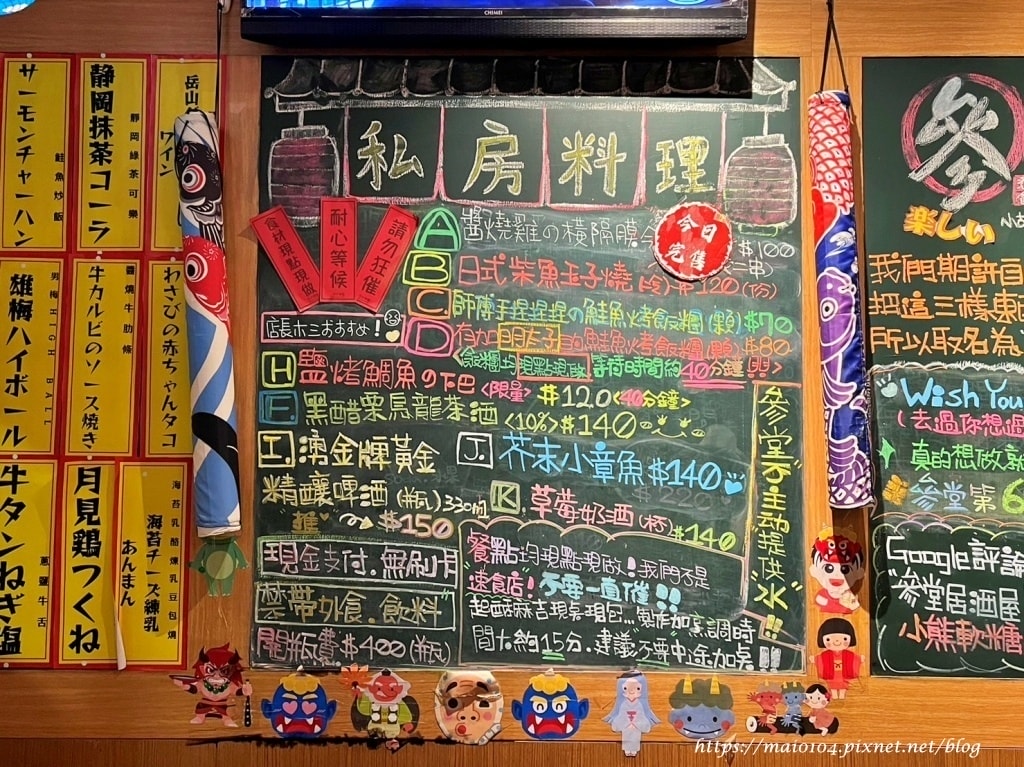 CHIMEI
サーモンチャーハン
鮭魚炒飯
静岡抹茶コーラ
靜岡綠茶可樂
ワイン
雄梅ハイボール
男梅HIGH BALL
牛カルビのソース焼き
醬燒牛肋條
わさびの赤ちゃんタコ
牛タンねぎ塩
蔥鹽牛舌
月見鶏つくね
海苔チーズ練乳あんまん
海苔乳酪煉乳豆包燒
私房料理
食材現點現做
耐心等候
請勿狂催
A 醬燒雞の橫隔膜
今日完售
$100
二串)
B 日式柴魚玉子燒
$120(份)
C 師傅手捏捏捏の鮭魚烤飯糰(顆) $70
店長ホミおすすめ!
D 有加明太子的鮭魚烤飯糰(顆) $80
<飯糰均現點現做 等待時間約40分鐘!!>
H 鹽烤鯛魚の下巴 <限量> $120 <40分鐘>
黑醋栗烏龍茶酒 <10%> $140
I. 漓金牌黃金精釀啤酒(瓶)330ml
推 $150
J. 芥末小章魚 $140
K. 草莓奶酒(杯) $140
參堂不主動提供水!!
現金支付.無刷卡
禁帶外食.飲料
開瓶費$400(瓶)
餐點均現點現做!我們不是
速食店!不要一直催!!
起司麻吉現桌現包...製作加烹調時
間大約15分.建議不要中途加点!!
參
楽しい
我們期許自
把這三樣東西
所以取名為
Wish You
(去過你想過
真的想做就
參堂 第6
Google評論
"參堂居酒屋
小熊軟糖
https://mai0104.pixnet.net/blog